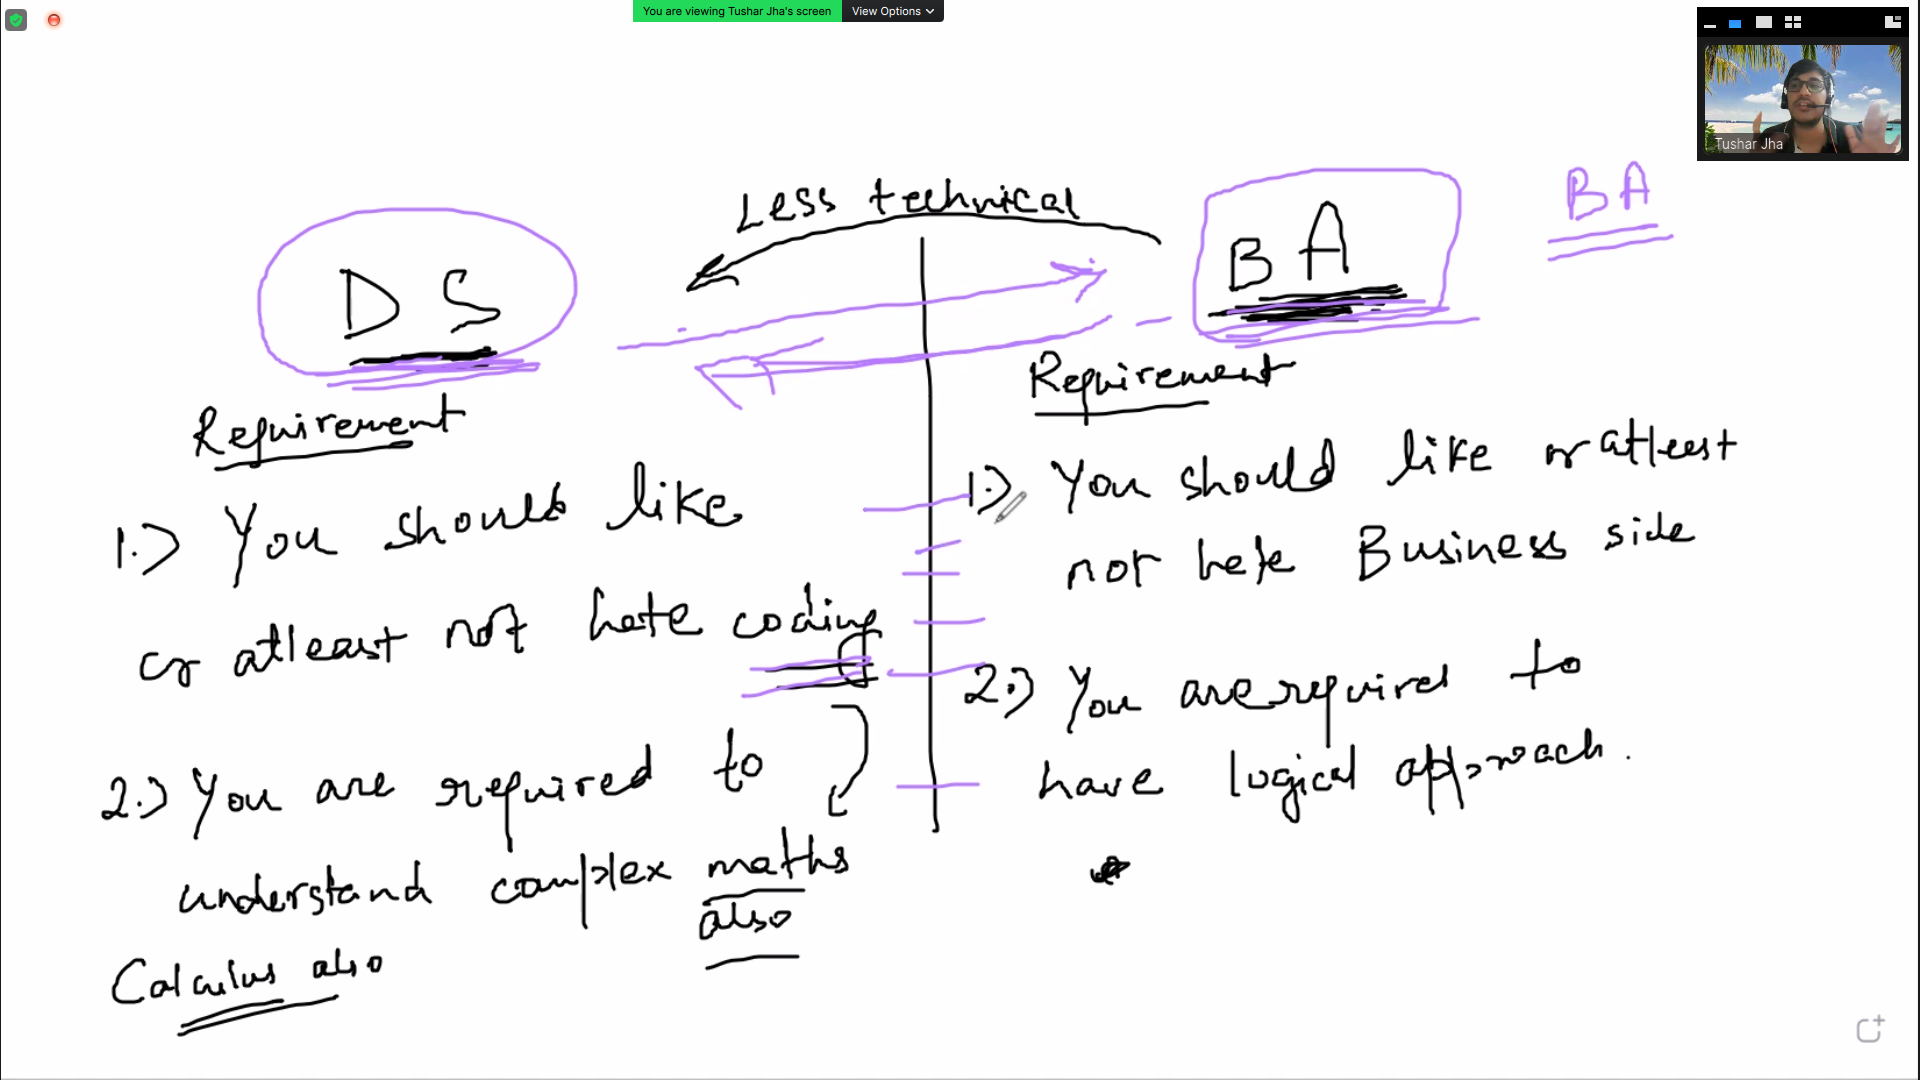 You are viewing Tushar Jha's screen View Options
Tushar Jha
Less technical
DS
Requirement
1.) You should like
or atleast not hate coding
2.) You are required to
understand complex maths
also
Calculus also
BA
BA
Requirement
1.) You should like or atleest
not hate Business side
2.) You are required to
have logical approach.